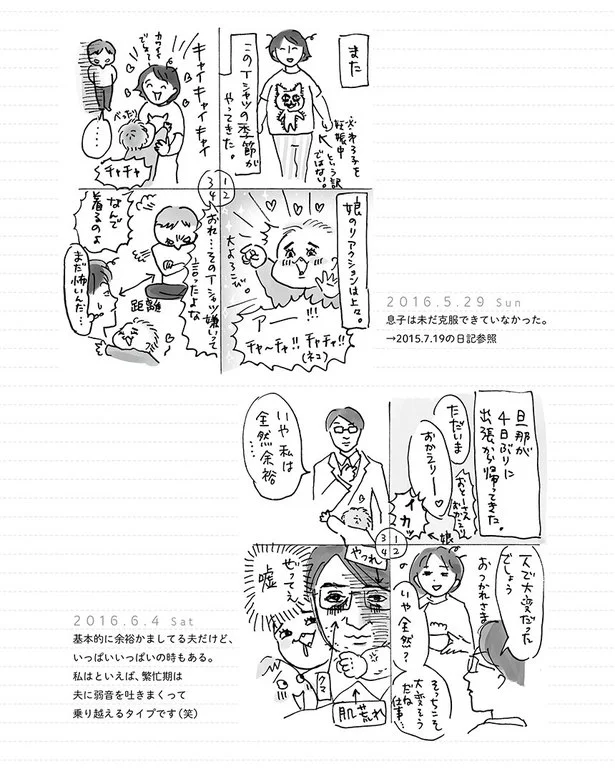 また
このTシャツの季節が
やってきた。
※第3子を
妊娠中
という訳
ではない。
娘のリアクションは上々。
大よろこび。
アー!!!
チャ〜チャ!! チャチャ!!
(ネコ)
キャイキャイキャイ
カワイイ
でちゅ
べったり
チャチャ
・・・
おれ…そのTシャツ嫌いって
言ったよな
なんで
着るのよ
まだ怖いんだ…
距離
1
2
3
4
2016.5.29 Sun
息子は未だ克服できていなかった。
→2015.7.19の日記参照
旦那が
4日ぶりに
出張から帰ってきた。
ただいま
おかえりー
おとーさん
おかえり
イカッ
←娘
一人で大変だった
でしょう
おつかれさま
いや全然?
そっちこそ
大変そう
だね
仕事…
いや私は
全然余裕
……
やつれ
ぜってぇ
嘘
クマ
肌荒れ
1
2
3
4
2016.6.4 Sat
基本的に余裕かましてる夫だけど、
いっぱいいっぱいの時もある。
私はといえば、繁忙期は
夫に弱音を吐きまくって
乗り越えるタイプです（笑）